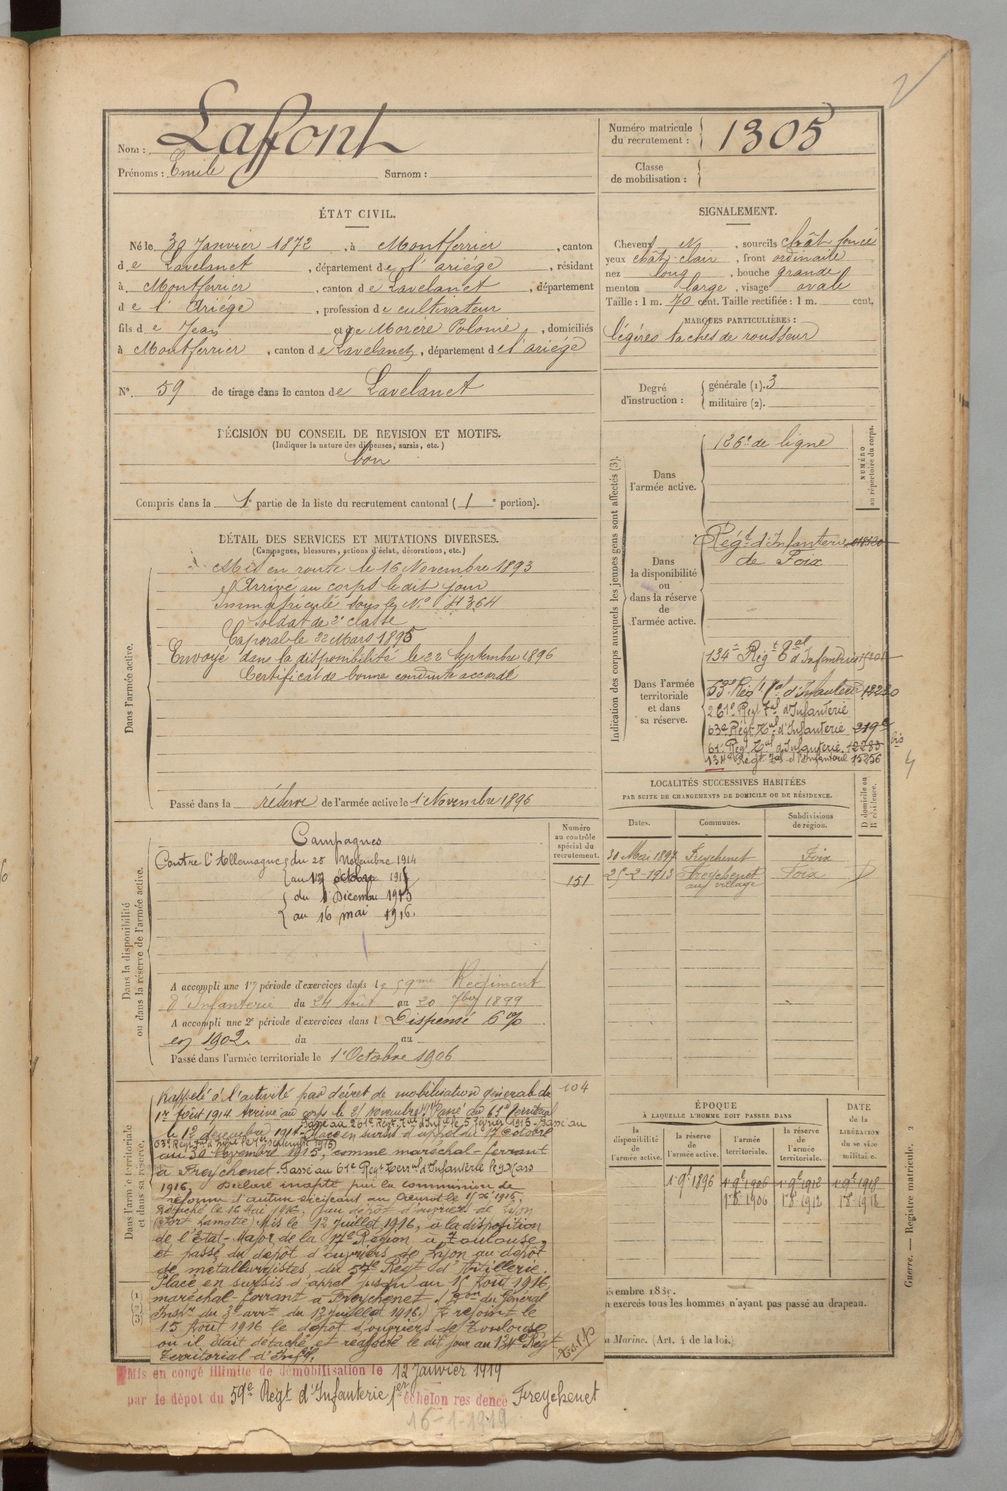 Nom : Lafont
Prénoms : Emile Surnom :
Numéro matricule du recrutement : 1305
Classe de mobilisation :
ÉTAT CIVIL.
Né le 30 Janvier 1872, à Montferrier, canton
de Lavelanet, département de l'ariége, résidant
à Montferrier, canton de Lavelanet, département
de l'Ariége, profession de cultivateur
fils de Jean et de Morere Polonie, domiciliés
à Montferrier, canton de Lavelanet, département de l'ariége
N° 59 de tirage dans le canton de Lavelanet
DÉCISION DU CONSEIL DE REVISION ET MOTIFS.
(Indiquer la nature des dispenses, sursis, etc.)
bon
Compris dans la 1e partie de la liste du recrutement cantonal (1e portion).
DÉTAIL DES SERVICES ET MUTATIONS DIVERSES.
(Campagnes, blessures, actions d'éclat, décorations, etc.)
Dans l'armée active.
Mis en route le 16 Novembre 1893
Arrivé au corps le dit jour
Immatriculé sous le N° 4364
Soldat de 2e classe
Caporal le 22 Mars 1895
Envoyé dans la disponibilité le 22 Septembre 1896
Certificat de bonne conduite accordé
Passé dans la réserve de l'armée active le 1 Novembre 1896
Dans la disponibilité ou dans la réserve de l'armée active.
Campagnes
Contre l'Allemagne du 25 Novembre 1914
au 17 octobre 1915
du 1 Décembre 1915
au 16 mai 1916
Numéro au contrôle spécial du recrutement.
151
A accompli une 1re période d'exercices dans le 59me Régiment
d'Infanterie du 24 Août au 20 7bre 1899
A accompli une 2e période d'exercices dans l Dispensé
en 1902. du au
Passé dans l'armée territoriale le 1er Octobre 1906
Dans l'armée territoriale et dans sa réserve.
104
Rappelé à l'activité par décret de mobilisation générale du
1er Août 1914 Arrivé au corps le Novembre 1914 Passé au 61e Territorial
le 12 décembre 1914 Passé au 261e Régt Tal d'Inf le 5 février 1915 - Passé au
Placé en sursis d'appel du 17 Octobre
au 30 Novembre 1915, comme maréchal-ferrant
à Freychenet. Passé au 61e Régt Terral d'Infanterie le Mars
1916. Déclaré inapte par la commission de
réforme d'autun
au dépôt d'ouvriers de Lyon
(Fort Lamotte) Mis le 12 Juillet 1916, à la disposition
de l'Etat-Major de la 17e Région à Toulouse,
et passé du dépôt d'ouvriers de Lyon au dépôt
de métallurgistes du 57e Régt d'Artillerie.
Placé en sursis d'appel jusqu'au 15 Août 1916,
maréchal ferrant à Freychenet du Général
du 13 Juillet 1916. A rejoint le
15 Août 1916 le dépôt d'ouvriers de Toulouse
où il était détaché et réaffecté le dit jour au 134e Régt
Territorial d'Infie.
Mis en congé illimité de démobilisation le 12 Janvier 1919
par le dépot du 59e Régt d'Infanterie 1er échelon residence Freychenet
16-1-1919
SIGNALEMENT.
Cheveux N, sourcils chât foncé
yeux chât-clair, front ordinaire
nez long, bouche grande
menton large, visage ovale
Taille : 1 m. 70 cent. Taille rectifiée : 1 m. cent.
MARQUES PARTICULIÈRES :
légéres taches de rousseur
Degré d'instruction : générale (1). 3
militaire (2).
Indication des corps auxquels les jeunes gens sont affectés (3).
NUMÉRO au répertoire du corps.
Dans l'armée active.
126e de ligne
Dans la disponibilité ou dans la réserve de l'armée active.
Régt d'Infanterie
de Foix
Dans l'armée territoriale et dans sa réserve.
134e Régt Tal d'Infanterie
53e Régt Tal d'Infanterie
261e Régt Tal d'Infanterie
63e Régt Tal d'Infanterie 319e bis
61e Régt Tal d'Infanterie
134e Régt Tal d'Infanterie 15256
LOCALITÉS SUCCESSIVES HABITÉES
PAR SUITE DE CHANGEMENTS DE DOMICILE OU DE RÉSIDENCE.
Dates. Communes. Subdivisions de région. D domicile ou R résidence.
30 Mai 1897 Freychenet Foix
25-2-1913 Freychenet au village Foix D
ÉPOQUE
À LAQUELLE L'HOMME DOIT PASSER DANS
DATE de la LIBÉRATION du service militaire.
la disponibilité de l'armée active. la réserve de l'armée active. l'armée territoriale. la réserve de l'armée territoriale.
1 9bre 1896 1 9bre 1906 1 9bre 1912 1 9bre 1918
1 8 1906 1 8 1912 1 8 1918
n exercés tous les hommes n'ayant pas passé au drapeau.
u Marine. (Art. 4 de la loi.)
Guerre. — Registre matricule. 2